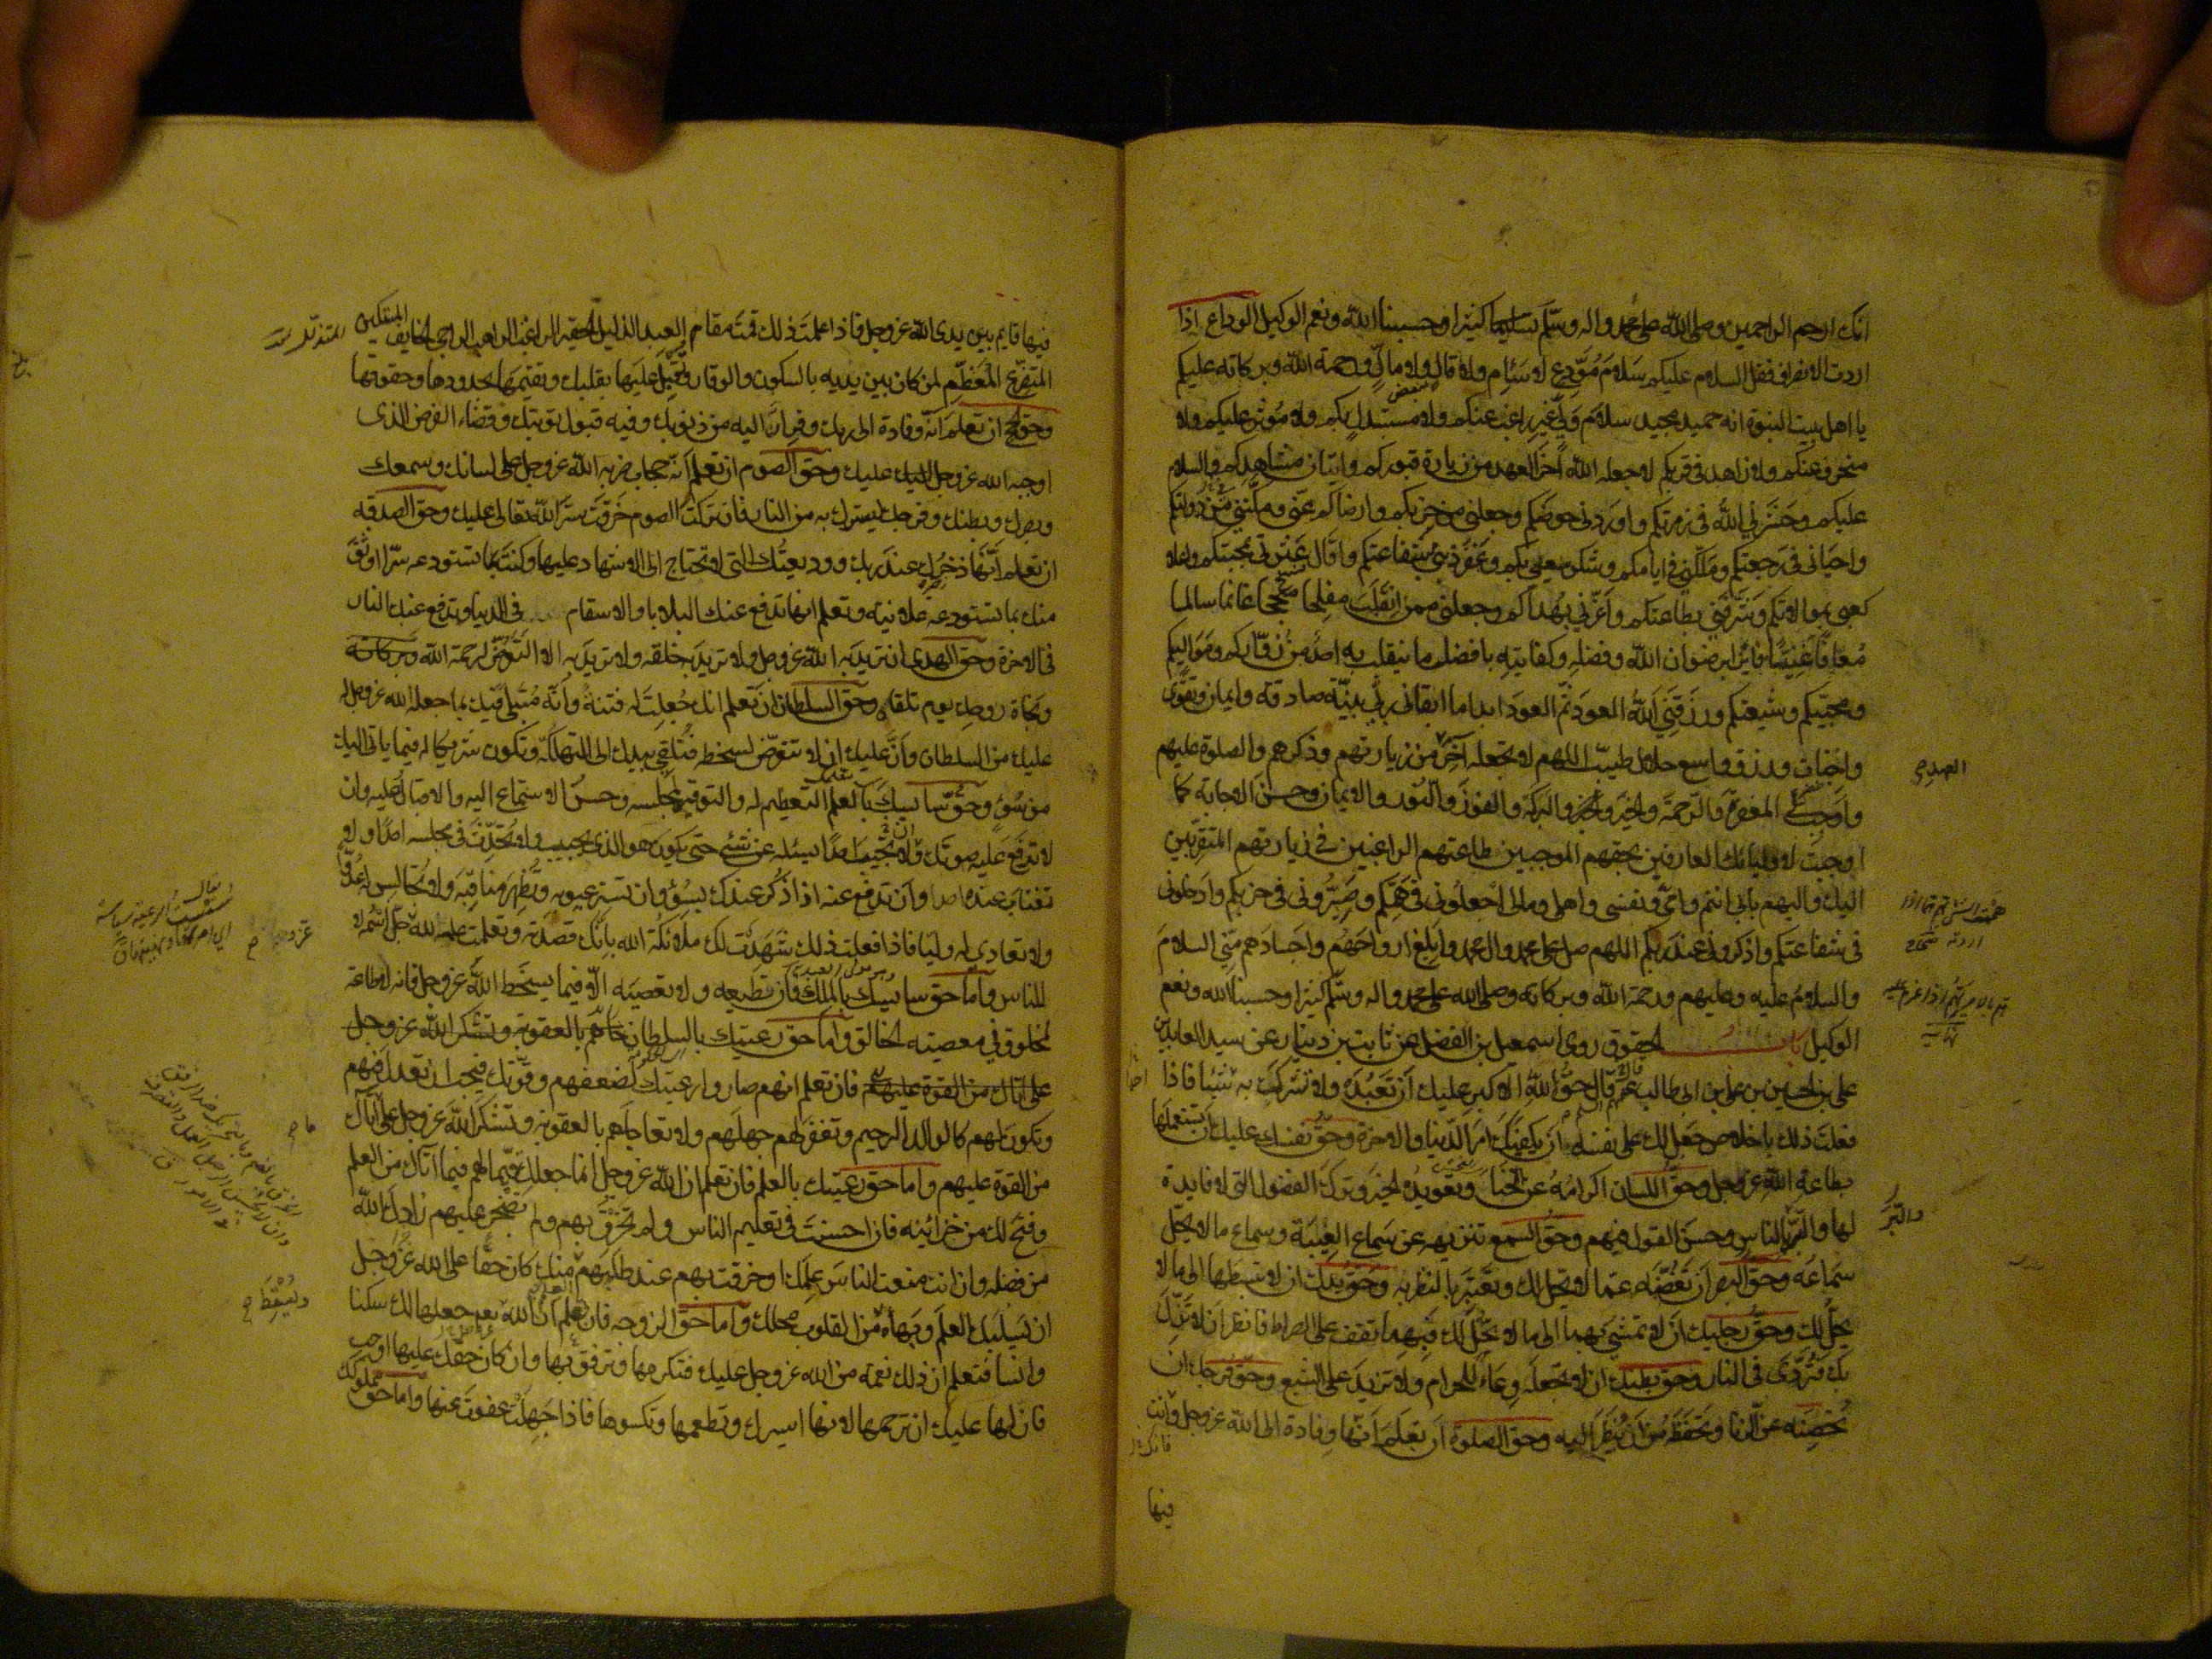 انك ارحم الراحمين وصلى الله على محمد واله وسلم تسليما كثيرا وحسبنا الله ونعم الوكيل الوداع اذا
اردت الانصراف فقل السلام عليكم سلام مودع لا سئم ولا قال ولا مال ورحمة الله وبركاته عليكم
يا اهل بيت النبوة انه حميد مجيد سلام ولي غير راغب عنكم ولا مستبدل بكم ولا موثر عليكم ولا
منحرف عنكم ولا زاهد في قربكم لا جعله الله اخر العهد من زيارة قبوركم واتيان مشاهدكم والسلام
عليكم وحشرني الله في زمرتكم واوردني حوضكم وجعلني من حزبكم وارضاكم عني ومكنني من دولتكم
واحياني في رجعتكم وملكني في ايامكم وشكر سعيي بكم وغفر ذنبي بشفاعتكم واقال عثرتي بمحبتكم واعلا
كعبي بموالاتكم وشرفني بطاعتكم واعزني بهداكم وجعلني ممن انقلب مفلحا منجحا غانما سالما
معافا غنيا فائزا برضوان الله وفضله وكفايته بافضل ما ينقلب به احد من زواركم ومواليكم
ومحبيكم وشيعتكم ورزقني الله العود ثم العود ابدا ما ابقاني ربي بنية صادقة وايمان وتقوى
واخبات ورزق واسع حلال طيب اللهم لا تجعله آخر من زيارتهم وذكرهم والصلوة عليهم
العهد
واوجب لي المغفرة والرحمة والخير والبركة والفوز والنور والايمان وحسن الاجابة كما
اوجبت لاوليائك العارفين بحقهم الموجبين طاعتهم الراغبين في زيارتهم المتقربين
اليك واليهم بابي انتم وامي ونفسي واهلي ومالي اجعلوني في همكم وصيروني في حزبكم وادخلوني
في شفاعتكم واذكروني عند ربكم اللهم صل على محمد وال محمد وابلغ ارواحهم واجسادهم مني السلام
والسلام عليه وعليهم ورحمة الله وبركاته وصلى الله على محمد واله وسلم كثيرا وحسبنا الله ونعم
الوكيل باب الحقوق روى اسمعيل بن الفضل عن ثابت بن دينار عن سيد العابدين
علي بن الحسين بن علي بن ابي طالب قال حق الله الاكبر عليك ان تعبده ولا تشرك به شيئا فاذا
فعلت ذلك باخلاص جعل لك على نفسه ان يكفيك امر الدنيا والاخرة وحق نفسك عليك ان تستعملها
بطاعة الله عز وجل وحق اللسان اكرامه عن الخنا وتعويده الخير وترك الفضول التي لا فايدة
لها والبر بالناس وحسن القول فيهم وحق السمع تنزيهه عن سماع الغيبة وسماع ما لا يحل
والبر
سماعه وحق البصر ان تغضه عما لا يحل لك وتعتبر بالنظر به وحق يدك ان لا تبسطها الى ما لا
يحل لك وحق رجليك ان لا تمشي بهما الى ما لا يحل لك فبهما تقف على الصراط فانظر ان لا تزل
بك فتردى في النار وحق بطنك ان لا تجعله وعاء للحرام ولا تزيد على الشبع وحق فرجك ان
تحصنه عن الزنا وتحفظه من ان ينظر اليه وحق الصلوة ان تعلم انها وفادة الى الله عز وجل وانت
فيها
فيها قايم بين يدي الله عز وجل فاذا علمت ذلك قمت مقام العبد الذليل الحقير الراغب الراهب الراجي الخايف المستكين
المتضرع المعظم لمن كان بين يديه بالسكون والوقار وتقبل عليها بقلبك وتقيمها بحدودها وحقوقها
وحق الحج ان تعلم انه وفادة الى ربك وفرار اليه من ذنوبك وفيه قبول توبتك وقضاء الفرض الذي
اوجبه الله عز وجل عليك وحق الصوم ان تعلم انه حجاب ضربه الله عز وجل على لسانك وسمعك
وبصرك وبطنك وفرجك ليسترك به من النار فان تركت الصوم خرقت ستر الله تعالى عليك وحق الصدقة
ان تعلم انها ذخرك عند ربك ووديعتك التي لا تحتاج الى الاشهاد عليها وكنت بما تستودعه سرا اوثق
منك بما تستودعه علانية وتعلم انها تدفع عنك البلايا والاسقام في الدنيا وتدفع عنك النار
في الاخرة وحق الهدي ان تريد به الله عز وجل ولا تريد به خلقه ولا تريد به الا التعرض لرحمة الله
ونجاة روحك يوم تلقاه وحق السلطان ان تعلم انك جعلت له فتنة وانه مبتلى فيك بما جعله الله عز وجل له
عليك من السلطان وان عليك ان لا تتعرض لسخطه فتلقي بيدك الى التهلكة وتكون شريكا له فيما ياتي اليك
من سوء وحق سايسك بالعلم التعظيم له والتوقير لمجلسه وحسن الاستماع اليه والاقبال عليه وان
لا ترفع عليه صوتك ولا تجيب احدا يسئله عن شيء حتى يكون هو الذي يجيب ولا تحدث في مجلسه احدا ولا
تغتاب عنده احدا وان تدفع عنه اذا ذكر عندك بسوء وان تستر عيوبه وتظهر مناقبه ولا تجالس له عدوا
ولا تعادي له وليا فاذا فعلت ذلك شهدت لك ملائكة الله بانك قصدته وتعلمت علمه لله جل اسمه لا
للناس واما حق سايسك بالملك فان تطيعه ولا تعصيه الا فيما يسخط الله عز وجل فانه لا طاعة
لمخلوق في معصية الخالق واما حق رعيتك بالسلطان
فان تعلم انهم صاروا رعيتك لضعفهم وقوتك فيجب ان تعدل فيهم
وتكون لهم كالوالد الرحيم وتغفر لهم جهلهم ولا تعاجلهم بالعقوبة وتشكر الله عز وجل على ما آتاك
من القوة عليهم واما حق رعيتك بالعلم فان تعلم ان الله عز وجل انما جعلك قيما لهم فيما آتاك من العلم
وفتح لك من خزائنه فان احسنت في تعليم الناس ولم تخرق بهم ولم تضجر عليهم زادك الله
من فضله وان انت منعت الناس علمك او خرقت بهم عند طلبهم منك كان حقا على الله عز وجل
ان يسلبك العلم وبهاءه من القلوب محلك واما حق الزوجة فان تعلم ان الله عز وجل جعلها لك سكنا
وانسا فتعلم ان ذلك نعمة من الله عز وجل عليك فتكرمها وترفق بها وان كان حقك عليها اوجب
فان لها عليك ان ترحمها لانها اسيرك وتطعمها وتكسوها فاذا جهلت عفوت عنها واما حق مملوكك